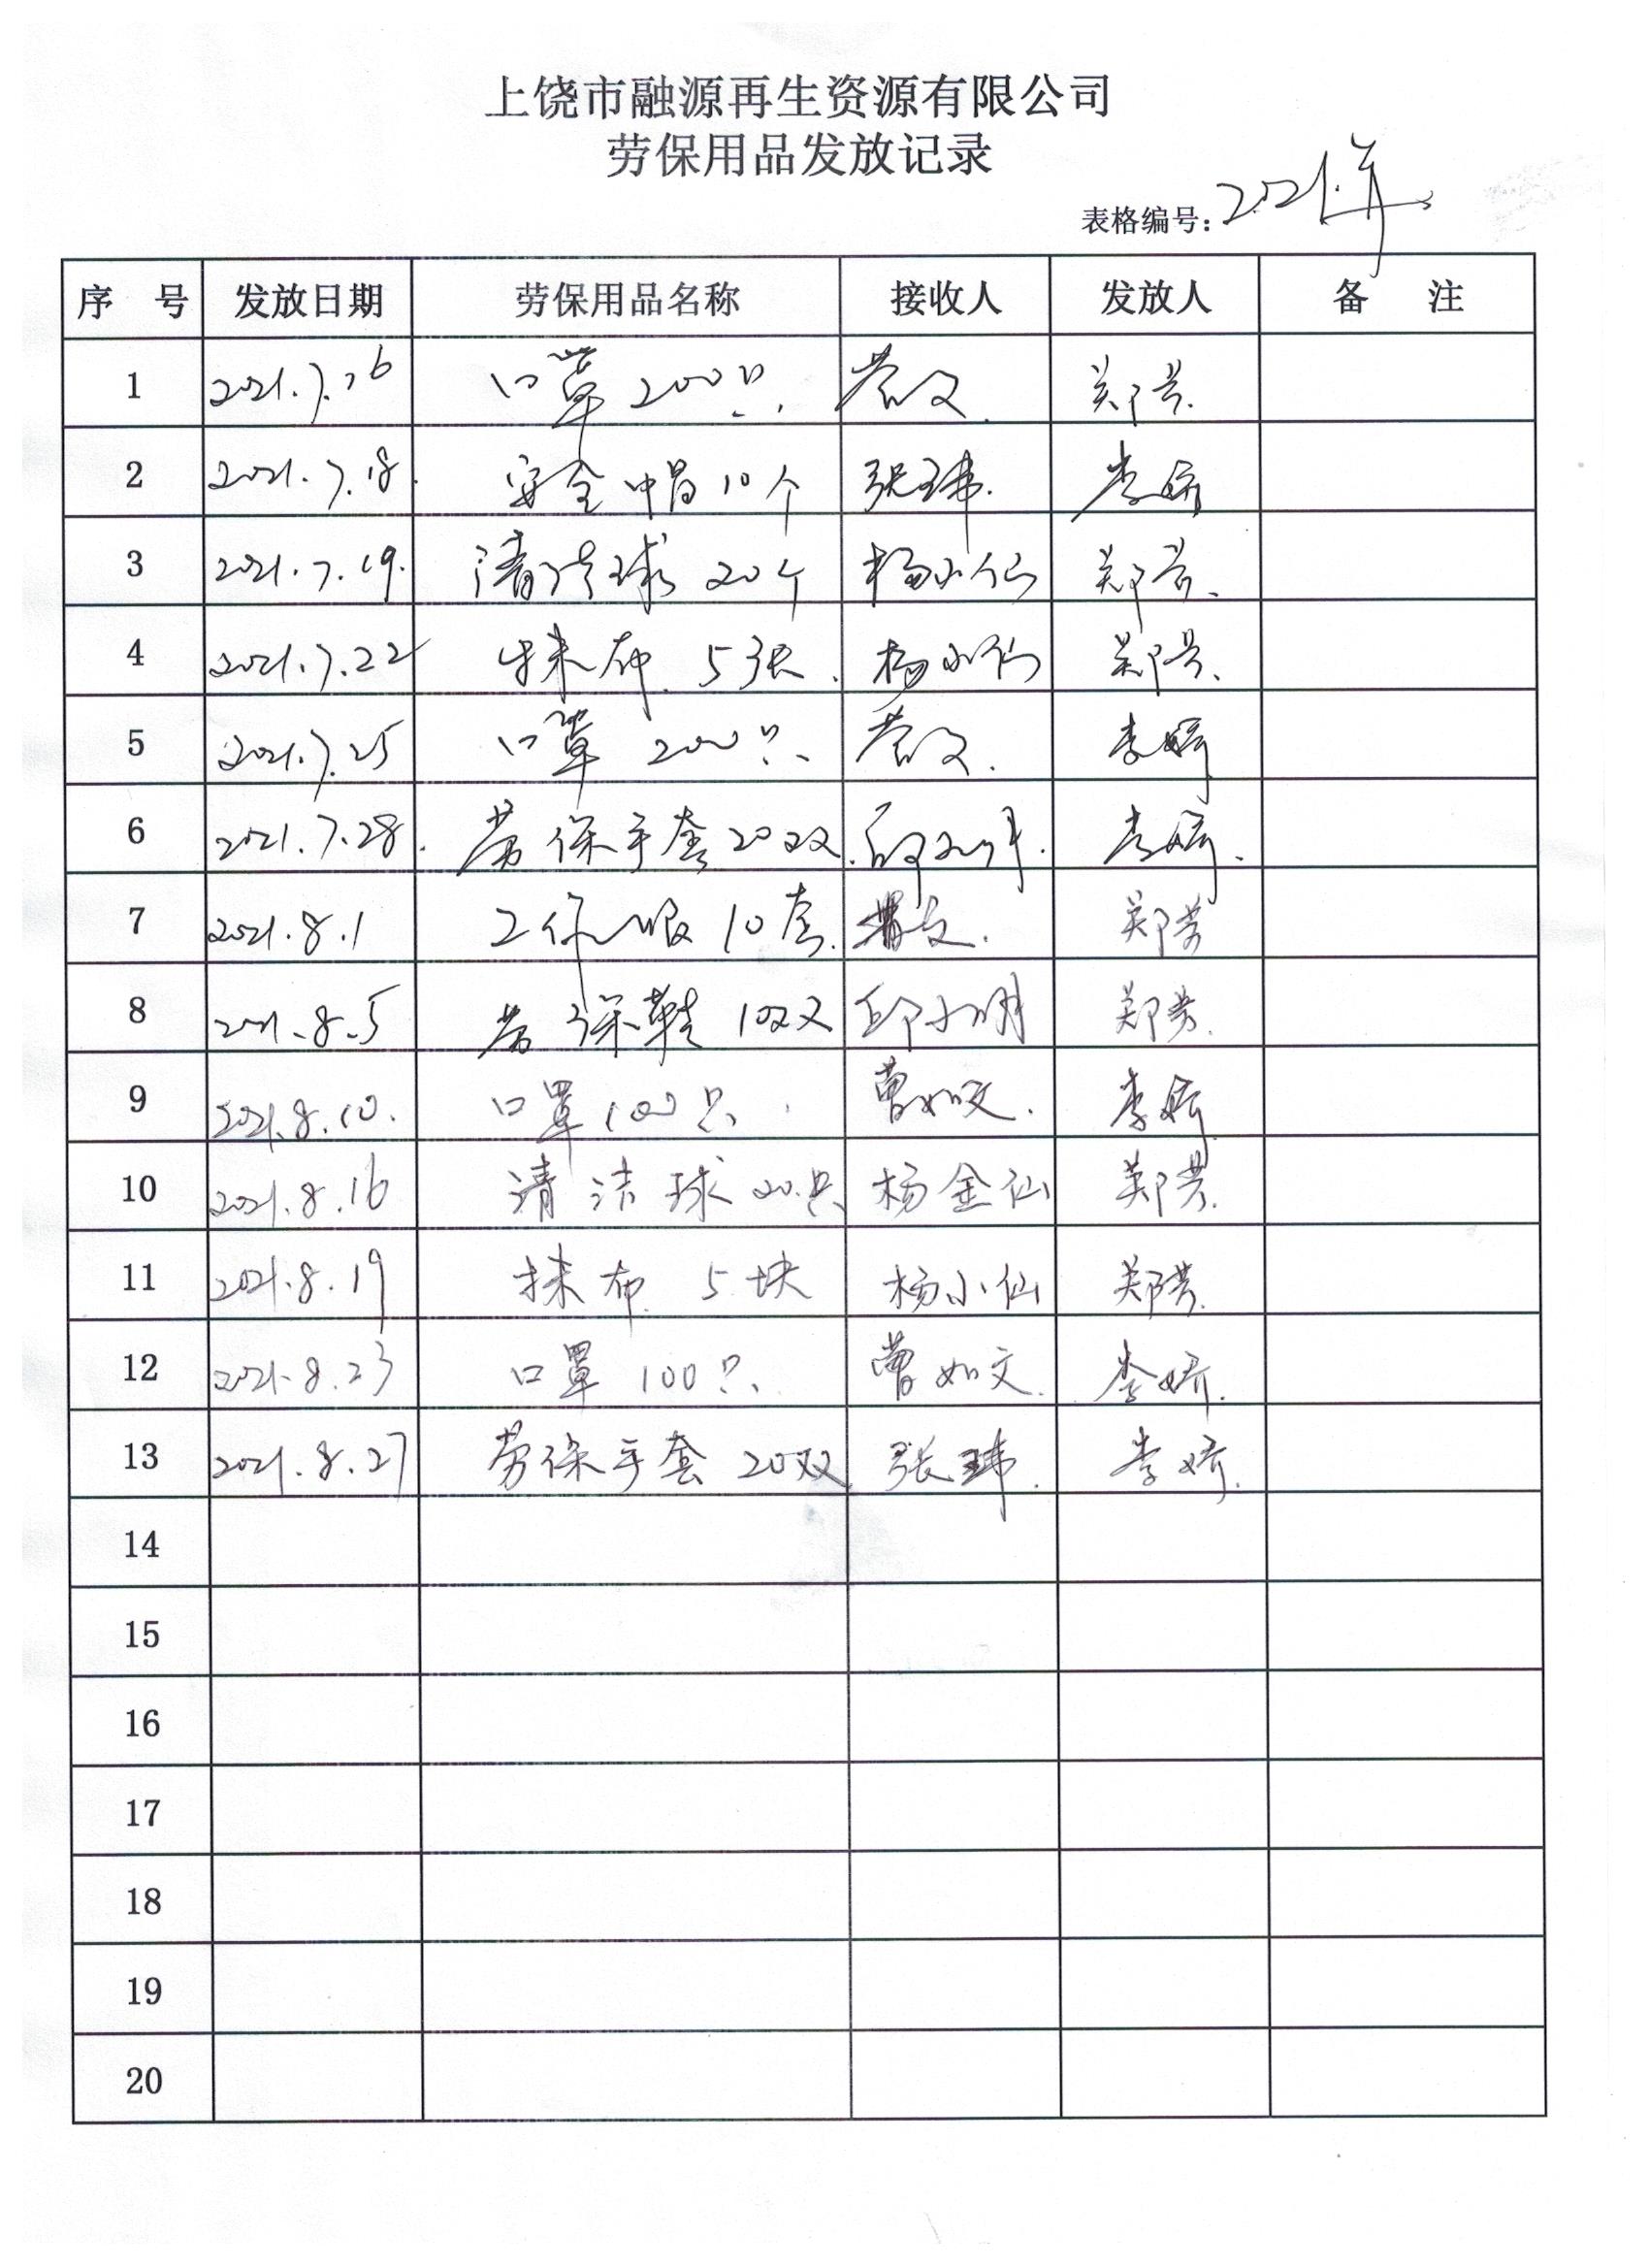 上饶市融源再生资源有限公司
劳保用品发放记录
表格编号：2021年
序 号 发放日期 劳保用品名称 接收人 发放人 备 注
1 2021.7.16 口罩 200只. 郑芳.
2 2021.7.18. 安全帽10个 张玮. 李娇
3 2021.7.19. 清洁球 20个 杨小仙 郑芳.
4 2021.7.22 抹布. 5张. 杨小仙 郑芳.
5 2021.7.25 口罩 200只. 李娇
6 2021.7.28. 劳保手套20双. 邱小明. 李娇.
7 2021.8.1 工作服 10套. 曹文. 郑芳
8 2021.8.5 劳保鞋 10双 邱小明 郑芳.
9 2021.8.10. 口罩100只. 曹如文. 李娇
10 2021.8.16 清洁球 20只 杨金仙 郑芳.
11 2021.8.19 抹布. 5块 杨小仙 郑芳.
12 2021.8.23 口罩 100只. 曹如文. 李娇.
13 2021.8.27 劳保手套 20双 张玮. 李娇.
14
15
16
17
18
19
20